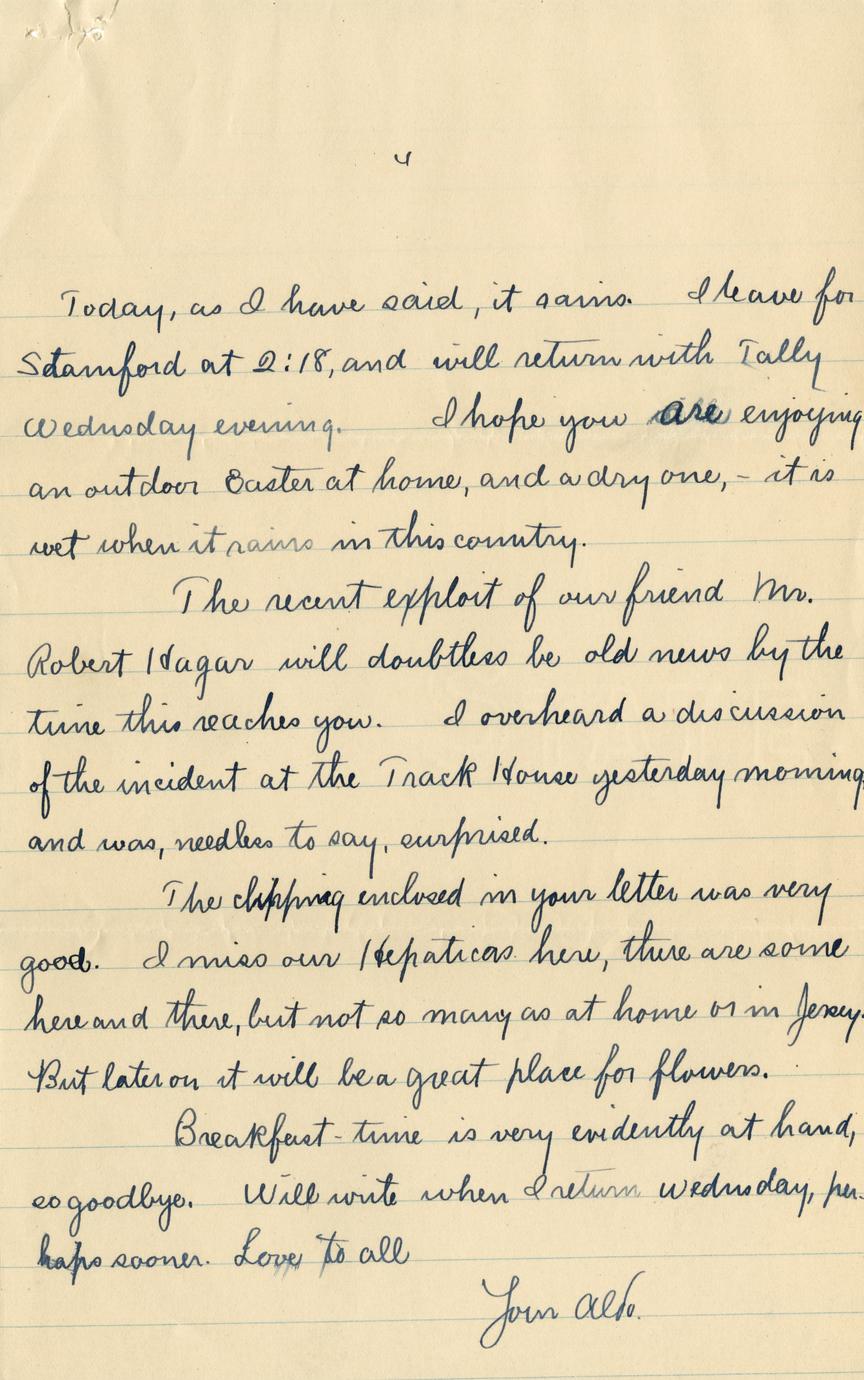 4
Today, as I have said, it rains. I leave for
Stamford at 2:18, and will return with Tally
Wednsday evening. I hope you are enjoying
an outdoor Easter at home, and a dry one, - it is
wet when it rains in this country.
The recent exploit of our friend Mr.
Robert Hagar will doubtless be old news by the
time this reaches you. I overheard a discussion
of the incident at the Track House yesterday morning
and was, needless to say, surprised.
The clipping enclosed in your letter was very
good. I miss our Hepaticas here, there are some
here and there, but not so many as at home or in Jersey.
But later on it will be a great place for flowers.
Breakfast-time is very evidently at hand,
so goodbye. Will write when I return Wednsday, per-
haps sooner. Love to all
Your Aldo.